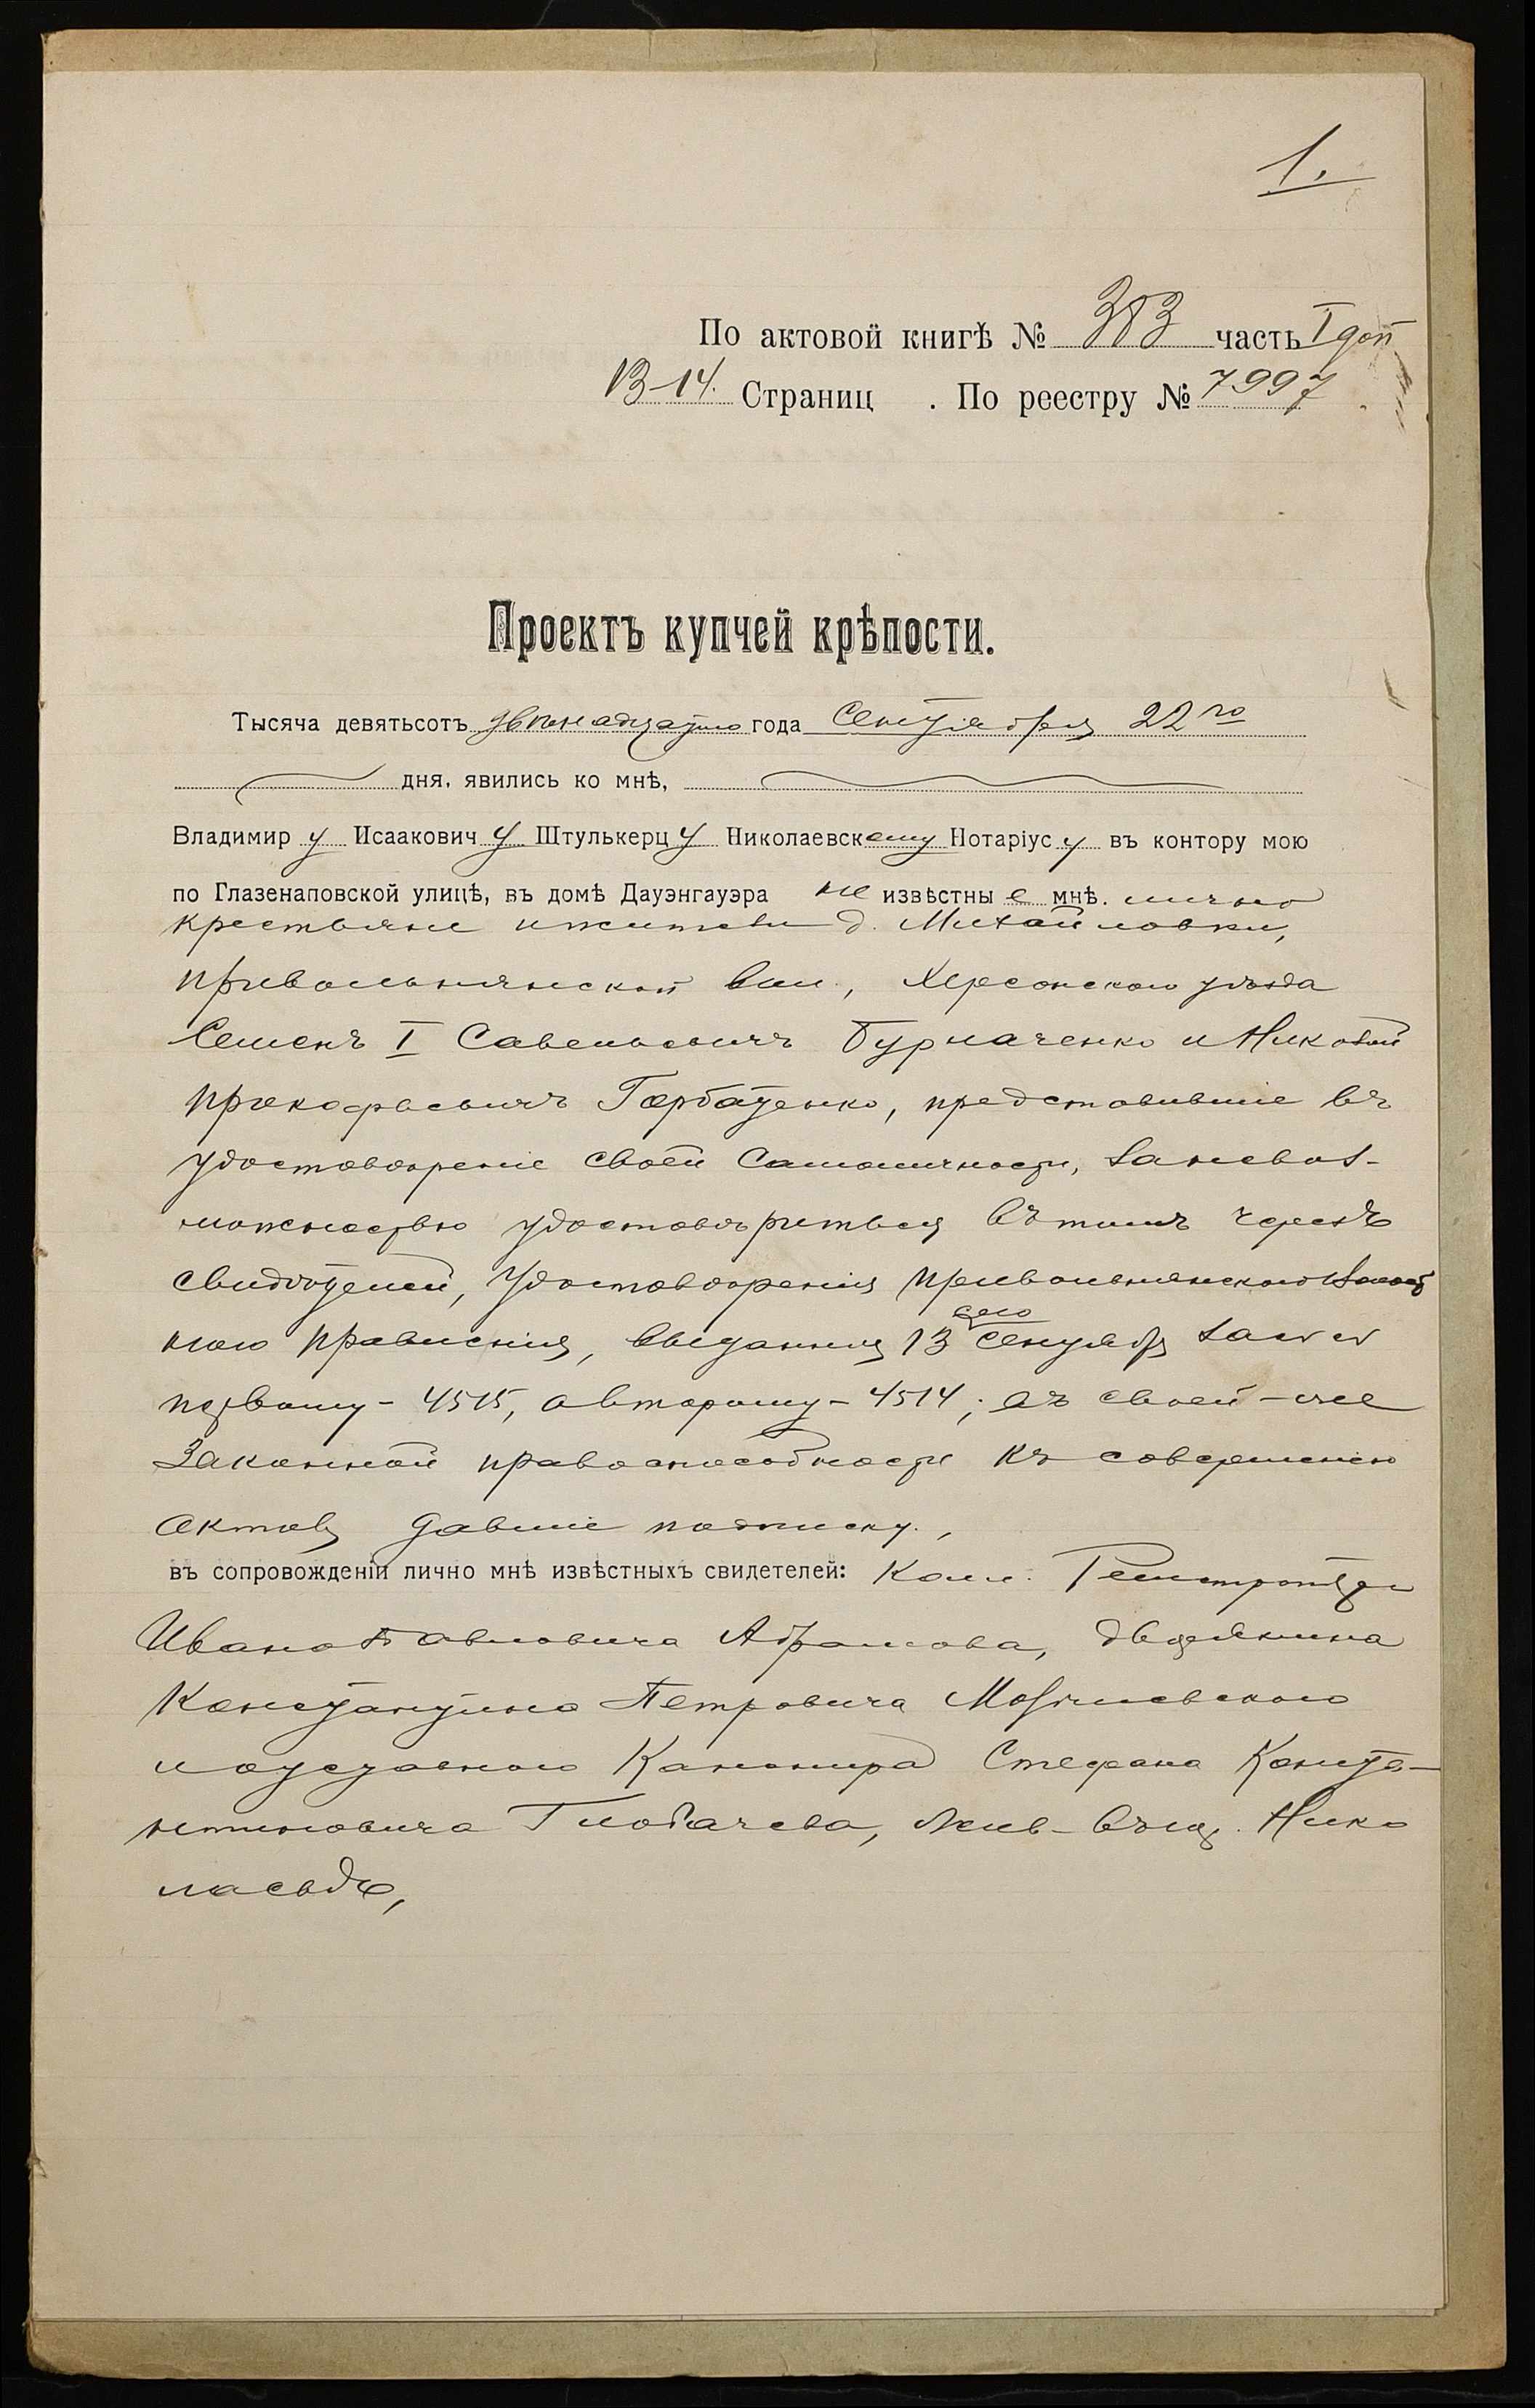 1.
По актовой книгѣ № 383 часть I доп
13-14. Страниц . По реестру № 7997
Проектъ купчей крѣпости.
Тысяча девятьсотъ двѣнадцатаго года Сентября 22го
дня, явились ко мнѣ,
Владимир у Исаакович у Штулькерц у Николаевскому Нотаріус у въ контору мою
по Глазенаповской улицѣ, въ домѣ Дауэнгауэра не известны е мнѣ. лично
крестьяне и жители д. Михайловки,
Привольнянской вол., Херсонскаго уѣзда
Семенъ I Савельевичъ Бурлаченко и Николай
Прокофьевичъ Горбатенко, представившіе въ
удостовѣреніе своей самоличности, за невоз-
можностью удостовѣриться въ томъ черезъ
свидѣтелей, удостовѣренія Привольнянскаго Волост
ного Правленія, выданныя 13 сего Сентября за №№
первому - 4515, а второму - 4514; а въ своей - же
законной правоспособности къ совершенію
актовъ давшіе подписку.,
въ сопровожденіи лично мнѣ извѣстныхъ свидетелей: Колл. Регистратора
Ивана Павловича Абрамова, дворянина
Константина Петровича Могилевскаго
и отставного Канонира Стефана Конста-
нтиновича Глобачева, жив. въ гор. Нико
лаевѣ,